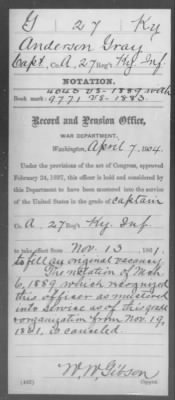 G 27 Ky
Anderson Gray
Capt., Co. A, 27 Reg't Ky. Inf.
NOTATION.
4045 VS-1889 with
Book mark: 9771 VS-1883
Record and Pension Office,
WAR DEPARTMENT,
Washington, April 7, 1904.
Under the provisions of the act of Congress, approved
February 24, 1897, this officer is held and considered by
this Department to have been mustered into the service
of the United States in the grade of captain
Co. A, 27 Reg't Ky. Inf.
to take effect from Nov. 13, 1861,
to fill an original vacancy.
The notation of Mch.
6, 1889, which recognized
this officer as mustered
into service as of this grade
organization from Nov. 19,
1861, is canceled.
W. W. Gibson
(462) Copyist.